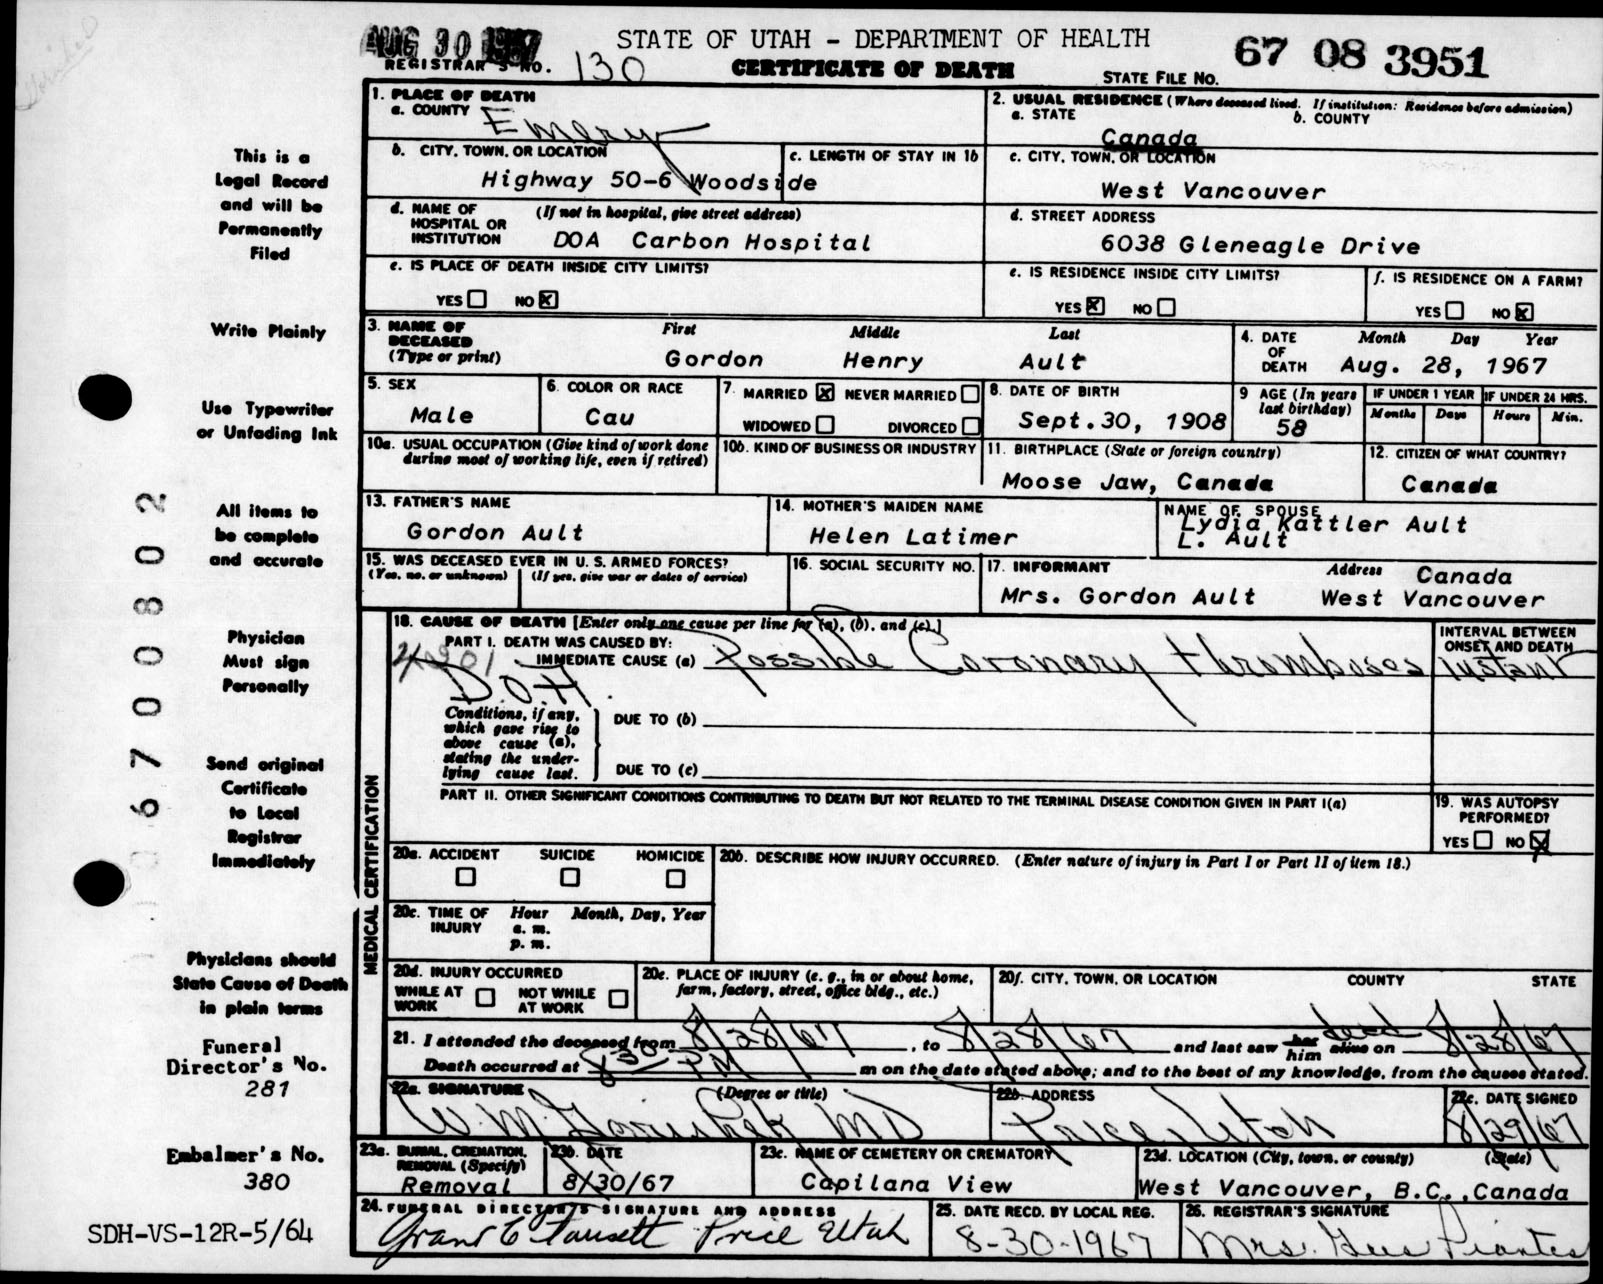 AUG 30 1967
STATE OF UTAH - DEPARTMENT OF HEALTH
67 08 3951
REGISTRAR'S NO. 130
CERTIFICATE OF DEATH
STATE FILE NO.
1. PLACE OF DEATH
a. COUNTY Emery
2. USUAL RESIDENCE (Where deceased lived. If institution: Residence before admission)
a. STATE b. COUNTY
Canada
b. CITY, TOWN, OR LOCATION
Highway 50-6 Woodside
c. LENGTH OF STAY IN 1b
c. CITY, TOWN, OR LOCATION
West Vancouver
d. NAME OF HOSPITAL OR INSTITUTION (If not in hospital, give street address)
DOA Carbon Hospital
d. STREET ADDRESS
6038 Gleneagle Drive
e. IS PLACE OF DEATH INSIDE CITY LIMITS?
YES NO X
e. IS RESIDENCE INSIDE CITY LIMITS?
YES X NO
f. IS RESIDENCE ON A FARM?
YES NO X
3. NAME OF DECEASED (Type or print)
First Middle Last
Gordon Henry Ault
4. DATE OF DEATH
Month Day Year
Aug. 28, 1967
5. SEX
Male
6. COLOR OR RACE
Cau
7. MARRIED X NEVER MARRIED
WIDOWED DIVORCED
8. DATE OF BIRTH
Sept.30, 1908
9 AGE (In years last birthday)
58
IF UNDER 1 YEAR
Months Days
IF UNDER 24 HRS.
Hours Min.
10a. USUAL OCCUPATION (Give kind of work done during most of working life, even if retired)
10b. KIND OF BUSINESS OR INDUSTRY
11. BIRTHPLACE (State or foreign country)
Moose Jaw, Canada
12. CITIZEN OF WHAT COUNTRY?
Canada
13. FATHER'S NAME
Gordon Ault
14. MOTHER'S MAIDEN NAME
Helen Latimer
NAME OF SPOUSE
Lydia Kattler Ault
L. Ault
15. WAS DECEASED EVER IN U. S. ARMED FORCES?
(Yes, no, or unknown) (If yes, give war or dates of service)
16. SOCIAL SECURITY NO.
17. INFORMANT Address Canada
Mrs. Gordon Ault West Vancouver
MEDICAL CERTIFICATION
18. CAUSE OF DEATH [Enter only one cause per line for (a), (b), and (c).]
PART I. DEATH WAS CAUSED BY:
4201
IMMEDIATE CAUSE (a) Possible Coronary thromboses
INTERVAL BETWEEN ONSET AND DEATH
instant
D.O.A.
Conditions, if any, which gave rise to above cause (a), stating the underlying cause last.
DUE TO (b)
DUE TO (c)
PART II. OTHER SIGNIFICANT CONDITIONS CONTRIBUTING TO DEATH BUT NOT RELATED TO THE TERMINAL DISEASE CONDITION GIVEN IN PART I(a)
19. WAS AUTOPSY PERFORMED?
YES NO X
20a. ACCIDENT SUICIDE HOMICIDE
20b. DESCRIBE HOW INJURY OCCURRED. (Enter nature of injury in Part I or Part II of item 18.)
20c. TIME OF INJURY Hour Month, Day, Year
a. m.
p. m.
20d. INJURY OCCURRED
WHILE AT WORK NOT WHILE AT WORK
20e. PLACE OF INJURY (e. g., in or about home, farm, factory, street, office bldg., etc.)
20f. CITY, TOWN, OR LOCATION COUNTY STATE
21. I attended the deceased from 8/28/67, to 8/28/67 and last saw her him alive dead on 8/28/67
Death occurred at 8 30 PM m on the date stated above; and to the best of my knowledge, from the causes stated.
22a. SIGNATURE (Degree or title)
W. M. Gorishek MD
22b. ADDRESS
Price, Utah
22c. DATE SIGNED
8/29/67
23a. BURIAL, CREMATION, REMOVAL (Specify)
Removal
23b. DATE
8/30/67
23c. NAME OF CEMETERY OR CREMATORY
Capilana View
23d. LOCATION (City, town, or county) (State)
West Vancouver, B.C., Canada
24. FUNERAL DIRECTOR'S SIGNATURE AND ADDRESS
Grant C Fausett Price Utah
25. DATE RECD. BY LOCAL REG.
8-30-1967
26. REGISTRAR'S SIGNATURE
Mrs.
This is a
Legal Record
and will be
Permanently
Filed
Write Plainly
Use Typewriter
or Unfading Ink
All items to
be complete
and accurate
Physician
Must sign
Personally
Send original
Certificate
to Local
Registrar
Immediately
Physicians should
State Cause of Death
in plain terms
Funeral
Director's No.
281
Embalmer's No.
380
SDH-VS-12R-5/64
00670080 2